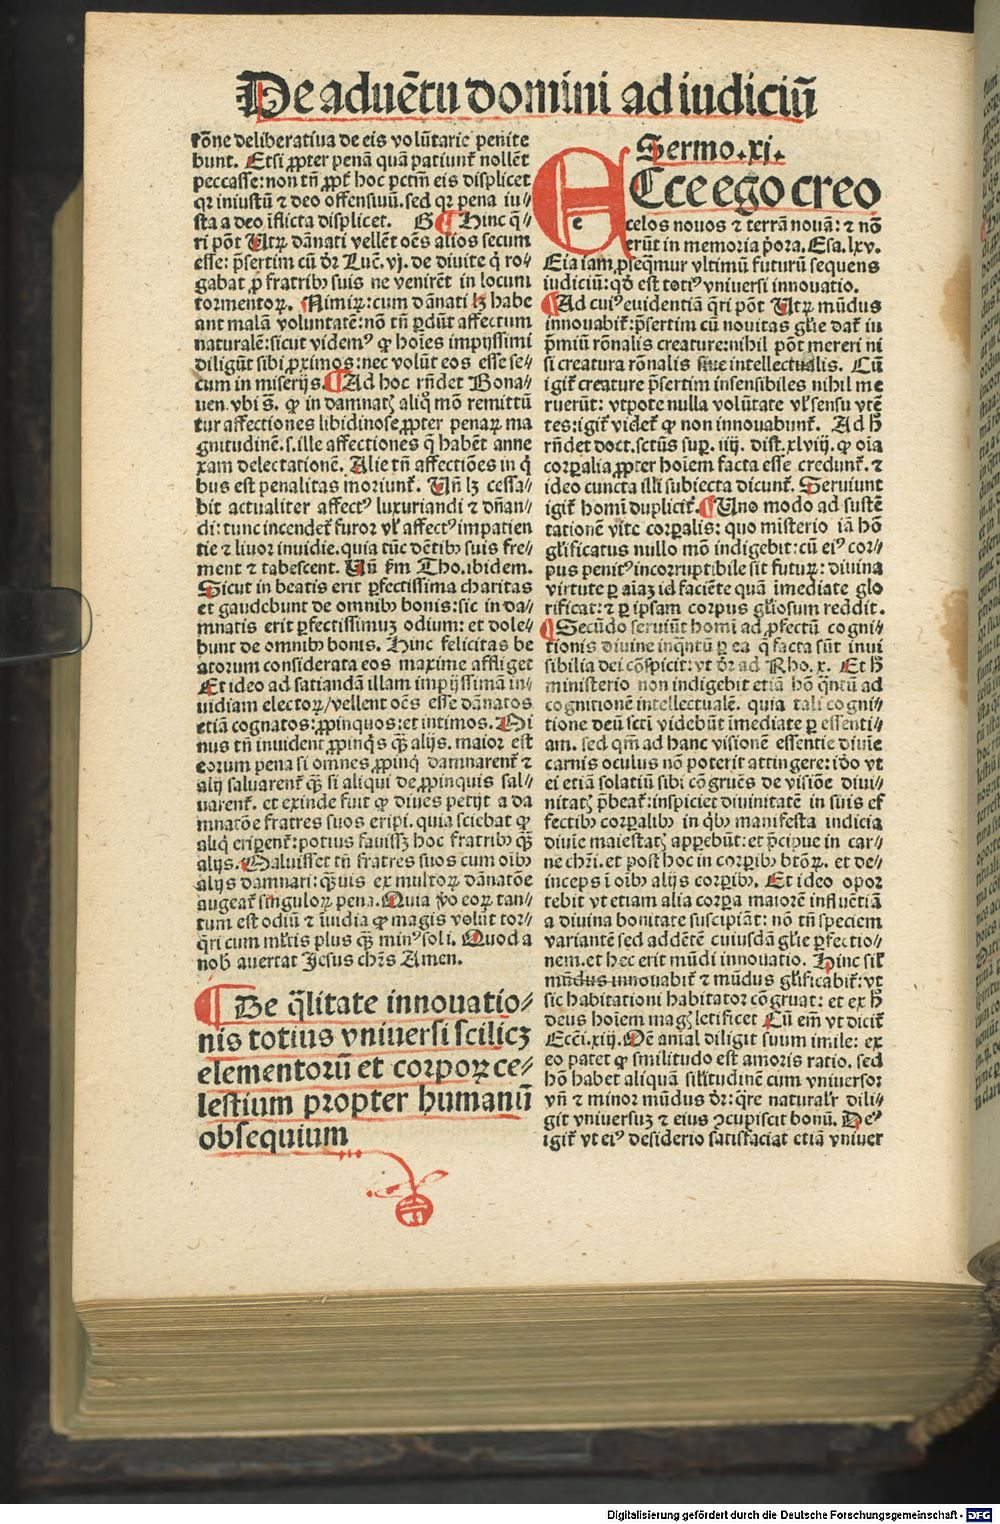 De aduētu domini ad iudiciū
rōne deliberatiua de eis volūtarie penite
bunt. Etsi ꝓpter penā quā patiunt̄ nollēt
peccasse: non tn̄ ꝓpt̄ hoc pctm̄ eis displicet
qꝛ iniustū ⁊ deo offensiuū. sed qꝛ pena iu⸗
sta a deo īflicta displicet. G Hinc q̄⸗
ri pōt Utꝝ dānati vellēt oēs alios secum
esse: p̄sertim cū dr̄ Luc̄. vj. de diuite q̇ ro⸗
gabat ꝓ fratribꝰ suis ne venirēt in locum
tormentoꝝ. Nimiꝝ: cum dānati lꝫ habe
ant malā voluntatē: nō tn̄ ꝑdūt affectum
naturalē: sicut videmꝰ ꝙ hoīes impijssimi
diligūt sibi ꝓximos: nec volūt eos esse se⸗
cum in miserijs. Ad hoc rn̄det Bona⸗
uen. vbi s̄. ꝙ in damnatꝭ aliq̇ mō remittū
tur affectiones libidinose ꝓpter penaꝝ ma
gnitudinē. s. ille affectiones q̄ habēt anne
xam delectationē. Alie tn̄ affectiōes in q̇
bus est penalitas īnoriunt̄. Un̄ lꝫ cessa⸗
bit actualiter affectꝰ luxuriandi ⁊ dn̄an⸗
di: tunc incendet̄ furor vl̓ affectꝰ impatien
tie ⁊ liuor inuidie. quia tūc dētibꝰ suis fre⸗
ment ⁊ tabescent. Un̄ ẜm Tho. ibidem.
Sicut in beatis erit ꝑfectissima charitas
et gaudebunt de omnibꝰ bonis: sic in da⸗
mnatis erit ꝑfectissimuꝫ odium: et dole⸗
bunt de omnibꝰ bonis. Hinc felicitas be
atorum considerata eos maxime affliget
Et ideo ad satiandā illam impijssimā in⸗
uidiam electoꝝ/ vellent oēs esse dānatos
etiā cognatos: ꝓpinquos: et intimos. Mi
nus tn̄ inuident ꝓpinq̇s q̄ꝫ alijs. maior est
eorum pena si omnes ꝓpinq̇ damnarent̄ ⁊
alij saluarent̄ q̄ꝫ si aliqui de ꝓpinquis sal⸗
uarent̄. et exinde fuit ꝙ diues petijt a da
mnatōe fratres suos eripi. quia sciebat ꝙ
aliq̇ eriꝑent̄: potius fauissꝫ hoc fratribꝰ q̄ꝫ
alijs. Maluisset tn̄ fratres suos cum oībꝰ
alijs damnari: q̄ꝫuis ex multoꝝ dānatōe
augeat̄ singuloꝝ pena. Quia v̄o eoꝝ tan⸗
tum est odiū ⁊ īuidia ꝙ magis volūt tor⸗
q̄ri cum ml̓tis plus q̄ꝫ minꝰ soli. Quod a
nobꝭ auertat Jesus chr̄s Amen.
De q̄litate innouatio⸗
nis totius vniuersi scilicꝫ
elementorū et corpoꝝ ce⸗
lestium propter humanū
obsequium
Sermo. xj.
Ecce ego creo
e
celos nouos ⁊ terrā nouā: ⁊ nō
erūt in memoria p̄ora. Esa. lxv.
Eia iam ꝓseq̄mur vltimū futurū sequens
iudiciū: qd̓ est totiꝰ vniuersi innouatio.
Ad cuiꝰ euidentiā q̄ri pōt Utꝝ mūdus
innouabit̄: p̄sertim cū nouitas gl̓ie dat̄ in
p̄miū rōnalis creature: nihil pōt mereri ni
si creatura rōnalis siue intellectualis. Cū
igit̄ creature p̄sertim insensibiles nihil me
ruerūt: vtpote nulla volūtate vl̓ sensu vtē
tes: igit̄ videt̄ ꝙ non innouabunt̄. Ad ħ
rn̄det doct. sctūs suꝑ. iiij. dist. xlviij. ꝙ oīa
corꝑalia ꝓpter hoīem facta esse credunt̄. ⁊
ideo cuncta illi subiecta dicunt̄. Seruiunt
igit̄ homī duplicit̄. Uno modo ad sustē
tationē vite corꝑalis: quo misterio iā hō
gl̓ificatus nullo mō indigebit: cū eiꝰ cor⸗
pus penitꝰ incorruptibile sit futuꝝ: diuina
virtute ꝑ aīaꝫ id faciēte quā īmediate glo
rificat: ⁊ ꝑ ipsam corpus gl̓iosum reddit.
Secūdo seruiūt homī ad ꝓfectū cogni⸗
tionis diuine inq̄ntū ꝑ ea q̄ facta sūt inui
sibilia dei cōspicit: vt dr̄ ad Rho. x. Et ħ
ministerio non indigebit etiā hō q̄ntū ad
cognitionē intellectualē. quia tali cogni⸗
tione deū sctī videbūt īmediate ꝑ essenti⸗
am. sed qm̄ ad hanc visionē essentie diuīe
carnis oculus nō poterit attingere: ido̓ vt
ei etiā solatiū sibi cōgruēs de visiōe diui⸗
nitatꝭ p̄beat̄: inspiciet diuinitatē in suis ef
fectibꝰ corꝑalibꝰ in q̇bꝰ manifesta indicia
diuīe maiestatꝭ apꝑebūt: et p̄cipue in car⸗
ne chr̄i. et post hoc in corꝑibꝰ btōꝝ. et de⸗
inceps ī oībꝰ alijs corꝑibꝰ. Et ideo opor
tebit vt etiam alia corꝑa maiorē influētiā
a diuina bonitate suscipiāt: nō tn̄ speciem
variantē sed addētē cuiusdā gl̓ie ꝑfectio⸗
nem. et hec erit mūdi innouatio. Hinc sil̓
mūdus innouabit̄ ⁊ mūdus gl̓ificabit̄: vt
sic habitationi habitator cōgruat: et ex ħ
deus hoīem magꝭ letificet Cū em̄ vt dicit̄
Ecc̄i. xiij. Oē anial diligit suum imile: ex
eo patet ꝙ similitudo est amoris ratio. sed
hō habet aliquā sil̓itudinē cum vniuerso:
vn̄ ⁊ minor mūdus dr̄: q̄re naturalr̓ dili⸗
git vniuersuꝫ ⁊ eius ꝯcupiscit bonū. Deꝰ
igit̄ vt eiꝰ desiderio satisfaciat etiā vniuer
Digitalisierung gefördert durch die Deutsche Forschungsgemeinschaft - DFG